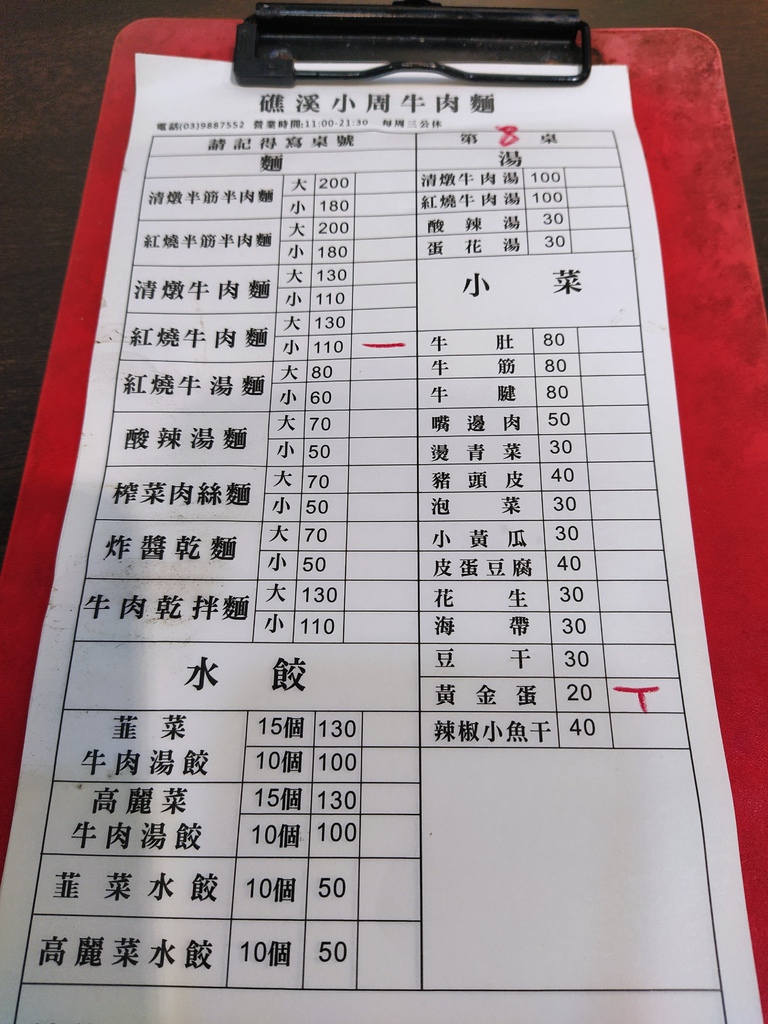 礁溪小周牛肉麵
電話(03)9887552 營業時間:11:00-21:30 每周三公休
請記得寫桌號
第 8 桌
麵
清燉半筋半肉麵 大 200
小 180
紅燒半筋半肉麵 大 200
小 180
清燉牛肉麵 大 130
小 110
紅燒牛肉麵 大 130
小 110 一
紅燒牛湯麵 大 80
小 60
酸辣湯麵 大 70
小 50
榨菜肉絲麵 大 70
小 50
炸醬乾麵 大 70
小 50
牛肉乾拌麵 大 130
小 110
水餃
韮菜 15個 130
牛肉湯餃 10個 100
高麗菜 15個 130
牛肉湯餃 10個 100
韮菜水餃 10個 50
高麗菜水餃 10個 50
湯
清燉牛肉湯 100
紅燒牛肉湯 100
酸辣湯 30
蛋花湯 30
小菜
牛肚 80
牛筋 80
牛腱 80
嘴邊肉 50
燙青菜 30
豬頭皮 40
泡菜 30
小黃瓜 30
皮蛋豆腐 40
花生 30
海帶 30
豆干 30
黃金蛋 20 丅
辣椒小魚干 40